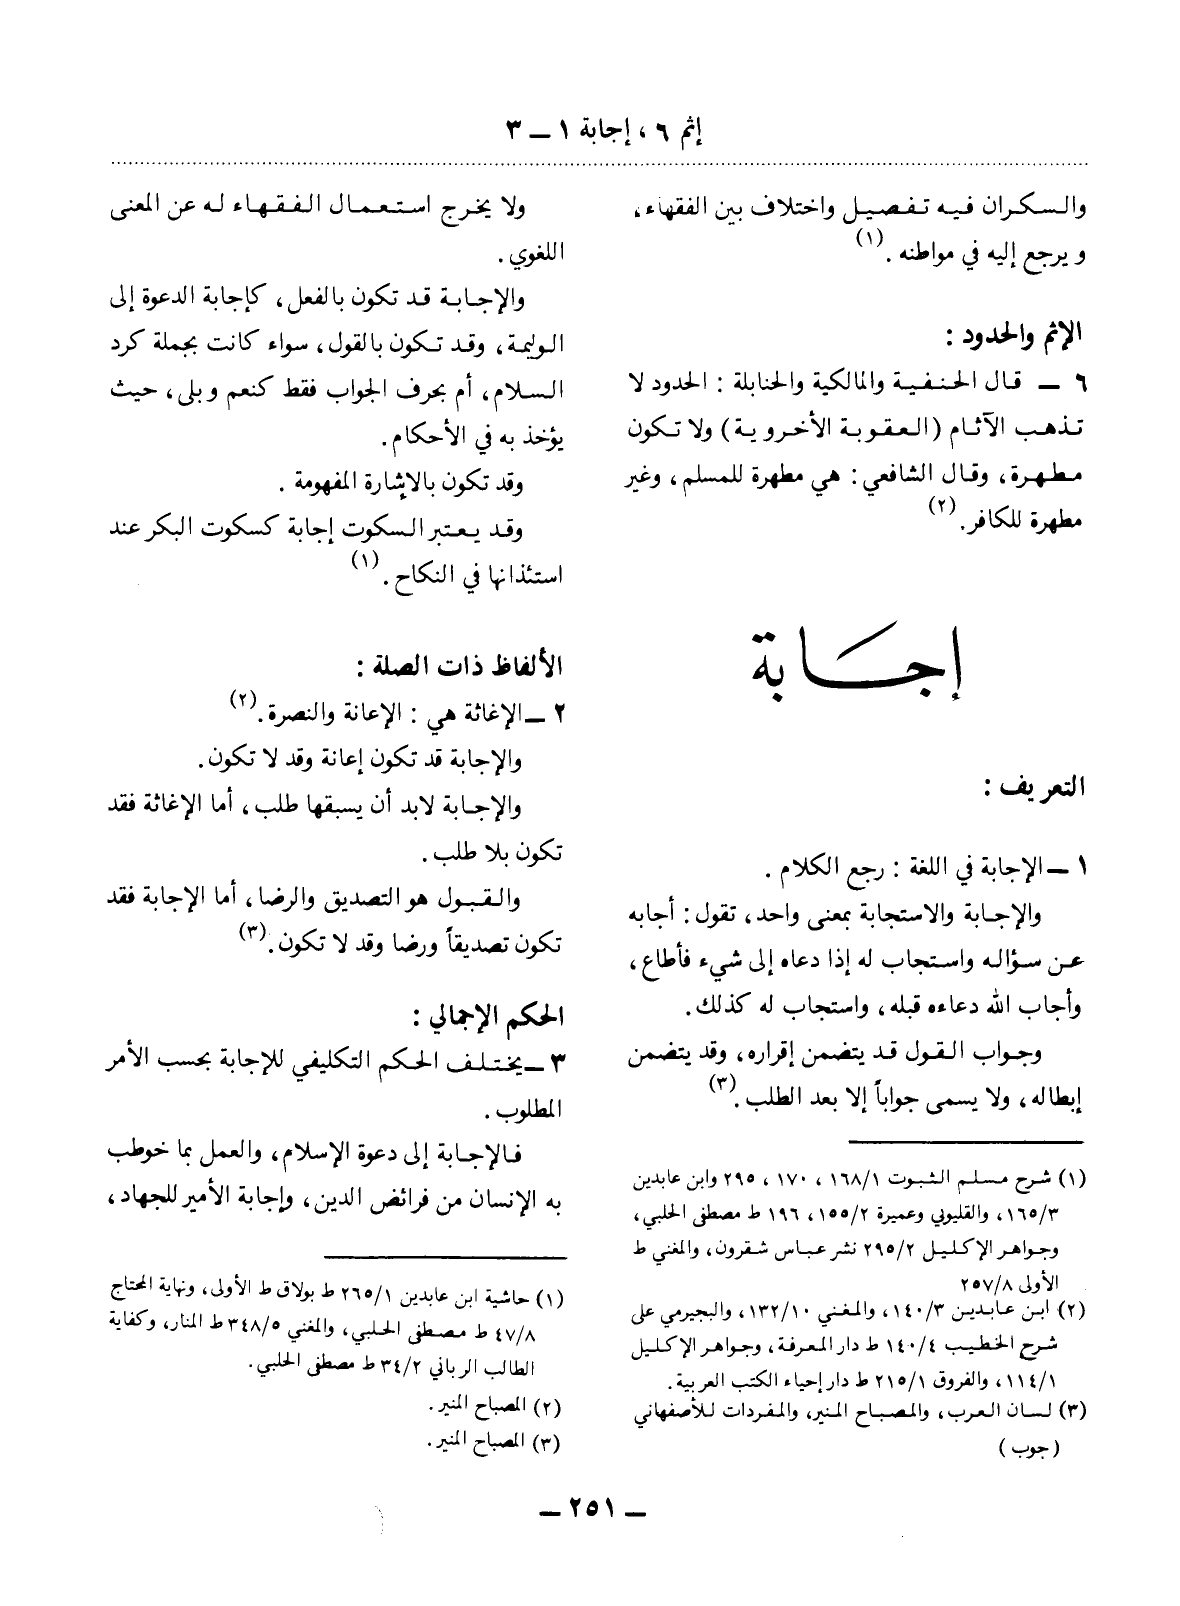 إثم ٦ ، إجابة ١ ـ ٣
والسكران فيه تفصيل واختلاف بين الفقهاء،
ويرجع إليه في مواطنه .(١)
الإثم والحدود :
٦ ـ قال الحنفية والمالكية والحنابلة : الحدود لا
تذهب الآثام (العقوبة الأخروية) ولا تكون
مطهرة، وقال الشافعي : هي مطهرة للمسلم ، وغير
مطهرة للكافر.(٢)
إجابة
التعريف :
١ ـ الإجابة في اللغة : رجع الكلام .
والإجابة والاستجابة بمعنى واحد، تقول : أجابه
عن سؤاله واستجاب له إذا دعاه إلى شيء فأطاع ،
وأجاب الله دعاءه قبله، واستجاب له كذلك.
وجواب القول قد يتضمن إقراره، وقد يتضمن
إبطاله، ولا يسمى جواباً إلا بعد الطلب.(٣)
(١) شرح مسلم الثبوت ١٦٨/١ ، ١٧٠ ، ٢٩٥ وابن عابدين
١٦٥/٣، والقليوبي وعميرة ١٥٥/٢، ١٩٦ ط مصطفى الحلبي،
وجواهر الإكليل ٢٩٥/٢ نشر عباس شقرون، والمغني ط
الأولى ٢٥٧/٨
(٢) ابن عابدين ١٤٠/٣، والمغني ١٣٢/١٠، والبجيرمي على
شرح الخطيب ١٤٠/٤ ط دار المعرفة، وجواهر الإكليل
١١٤/١، والفروق ٢١٥/١ ط دار إحياء الكتب العربية.
(٣) لسان العرب، والمصباح المنير، والمفردات للأصفهاني
(جوب)
ولا يخرج استعمال الفقهاء له عن المعنى
اللغوي .
والإجابة قد تكون بالفعل، كإجابة الدعوة إلى
الوليمة، وقد تكون بالقول، سواء كانت بجملة كرد
السلام، أم بحرف الجواب فقط كنعم وبلى، حيث
يؤخذ به في الأحكام.
وقد تكون بالإشارة المفهومة .
وقد يعتبر السكوت إجابة كسكوت البكر عند
استئذانها في النكاح .(١)
الألفاظ ذات الصلة :
٢ ـ الإغاثة هي : الإعانة والنصرة.(٢)
والإجابة قد تكون إعانة وقد لا تكون.
والإجابة لابد أن يسبقها طلب، أما الإغاثة فقد
تكون بلا طلب .
والقبول هو التصديق والرضا، أما الإجابة فقد
تكون تصديقاً ورضا وقد لا تكون.(٣)
الحكم الإجمالي :
٣ ـ يختلف الحكم التكليفي للإجابة بحسب الأمر
المطلوب .
فالإجابة إلى دعوة الإسلام، والعمل بما خوطب
به الإنسان من فرائض الدين، وإجابة الأمير للجهاد،
(١) حاشية ابن عابدين ٢٦٥/١ ط بولاق ط الأولى، ونهاية المحتاج
٤٧/٨ ط مصطفى الحلبي، والمغني ٣٤٨/٥ ط المنار، وكفاية
الطالب الرباني ٣٤/٢ ط مصطفى الحلبي.
(٢) المصباح المنير.
(٣) المصباح المنير.
ـ ٢٥١ ـ